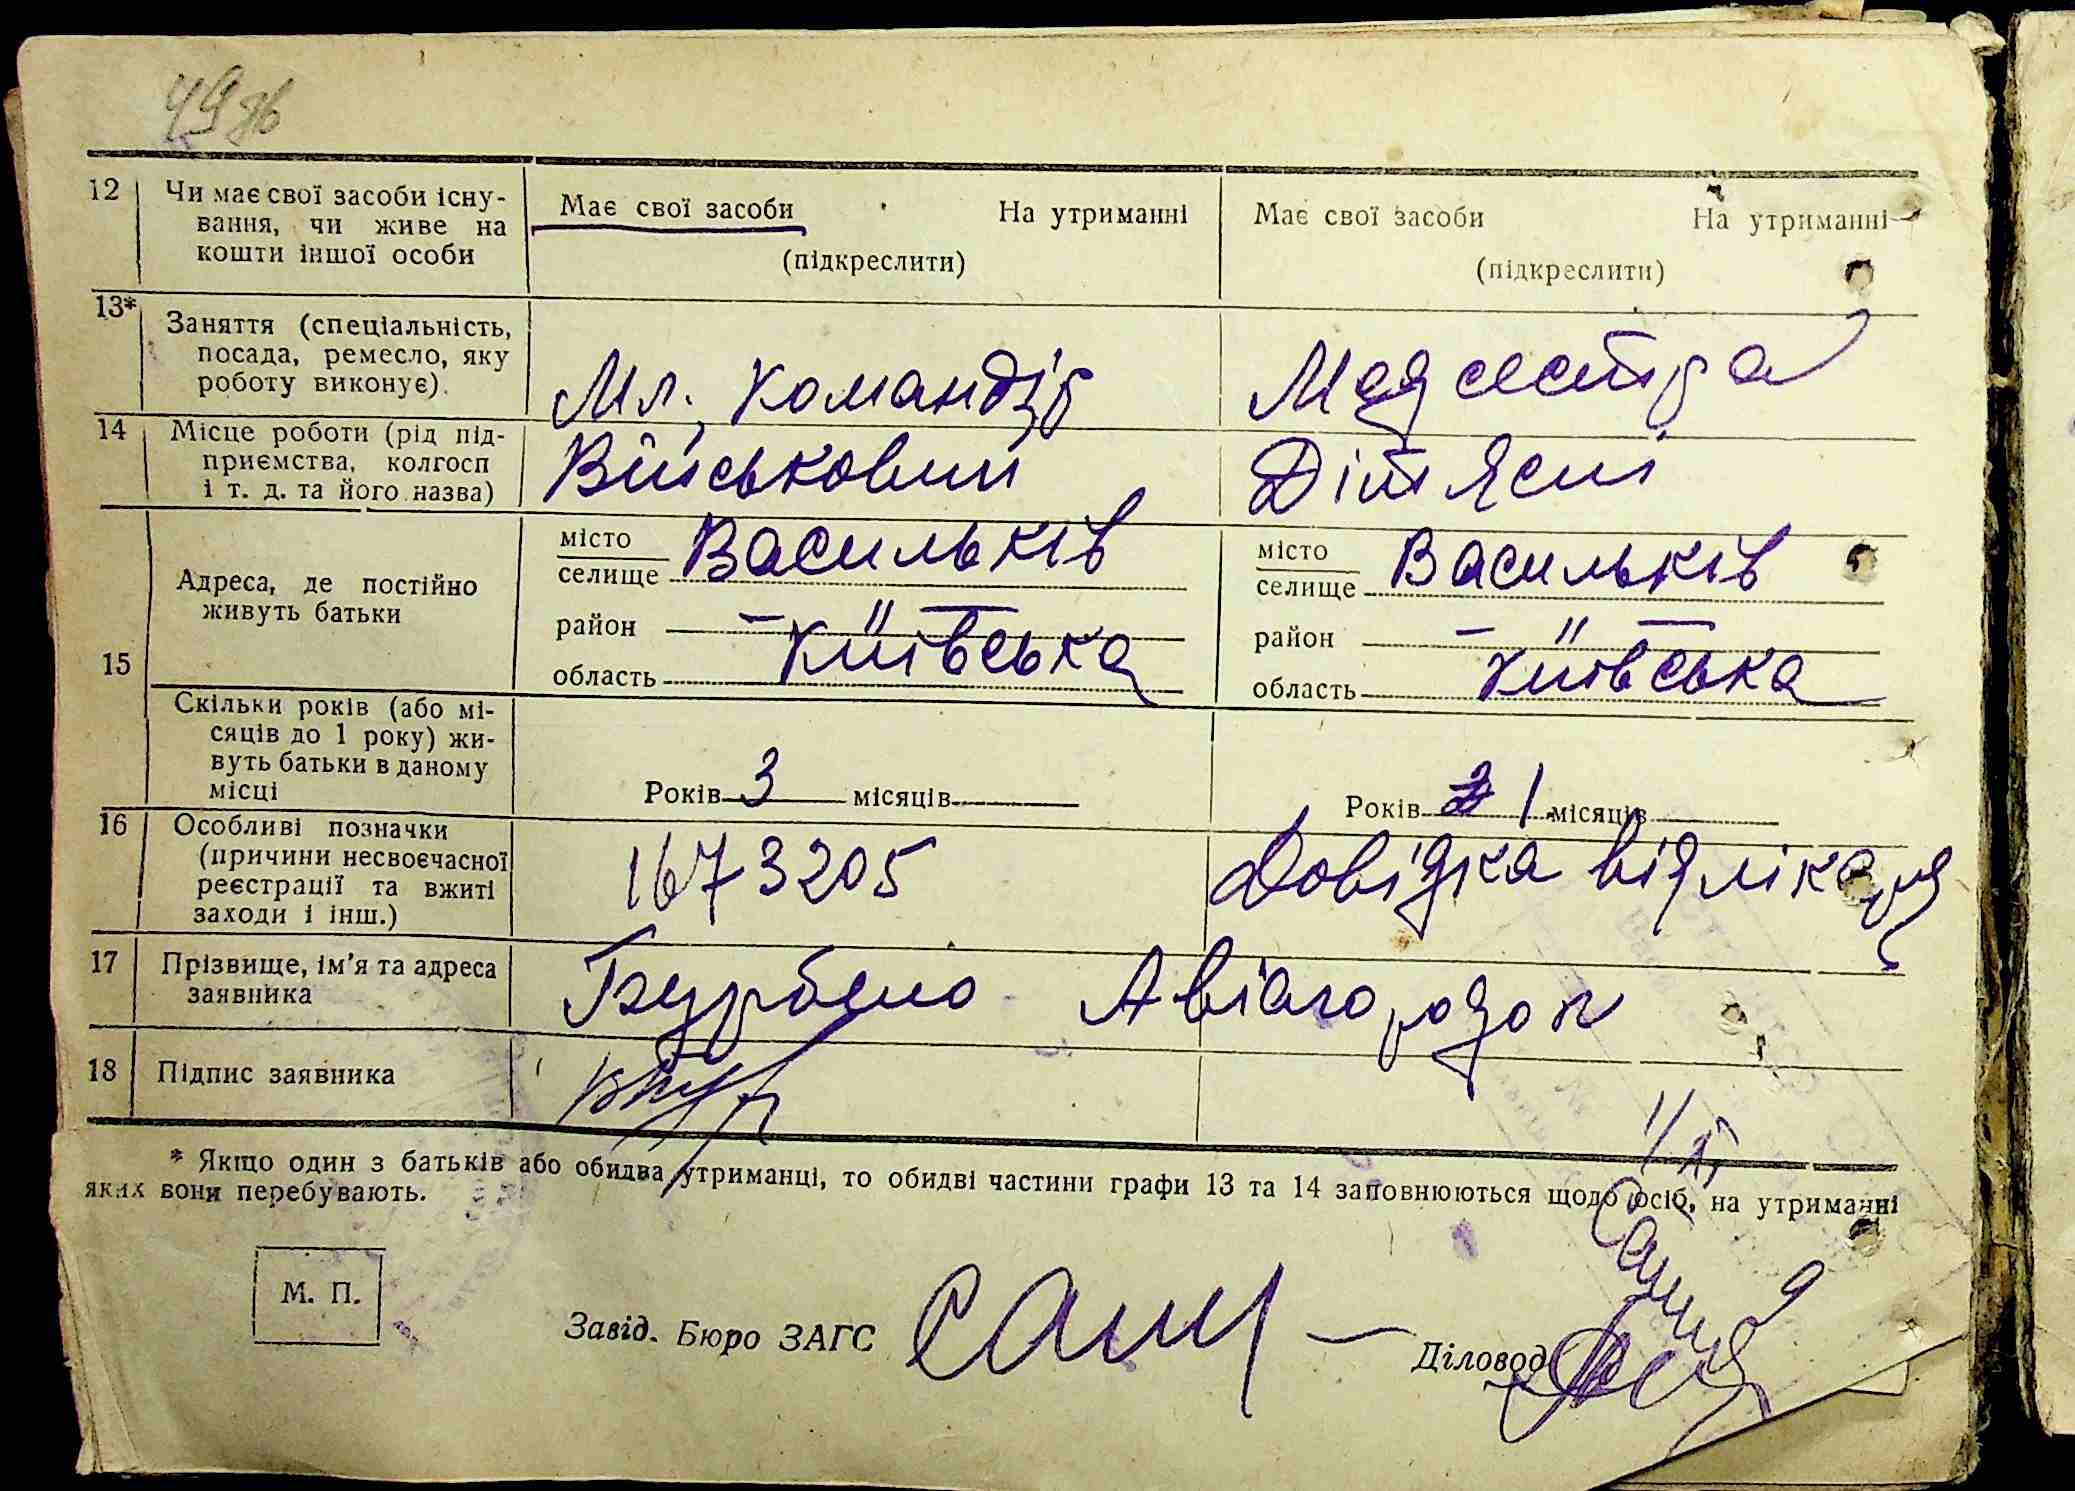 49 зв
12 Чи має свої засоби існу- Має свої засоби На утриманні Має свої засоби На утриманні
вання, чи живе на
кошти іншої особи (підкреслити) (підкреслити)
13* Заняття (спеціальність,
посада, ремесло, яку
роботу виконує). Мл. командір Медсестра
14 Місце роботи (рід під-
приємства, колгосп
і т. д. та його назва) Військовий Діт Яслі
15 Адреса, де постійно
живуть батьки
місто Васильків місто Васильків
селище селище
район — район —
область Київська область Київська
Скільки років (або мі-
сяців до 1 року) жи-
вуть батьки в даному
місці Років 3 місяців Років 1 місяців
16 Особливі позначки
(причини несвоєчасної
реєстрації та вжиті
заходи і інш.) 1673205 Довідка від лікаря
17 Прізвище, ім'я та адреса
заявника Авіагородок
18 Підпис заявника
* Якщо один з батьків або обидва утриманці, то обидві частини графи 13 та 14 заповнюються щодо осіб, на утриманні
яких вони перебувають.
М. П.
Завід. Бюро ЗАГС Діловод